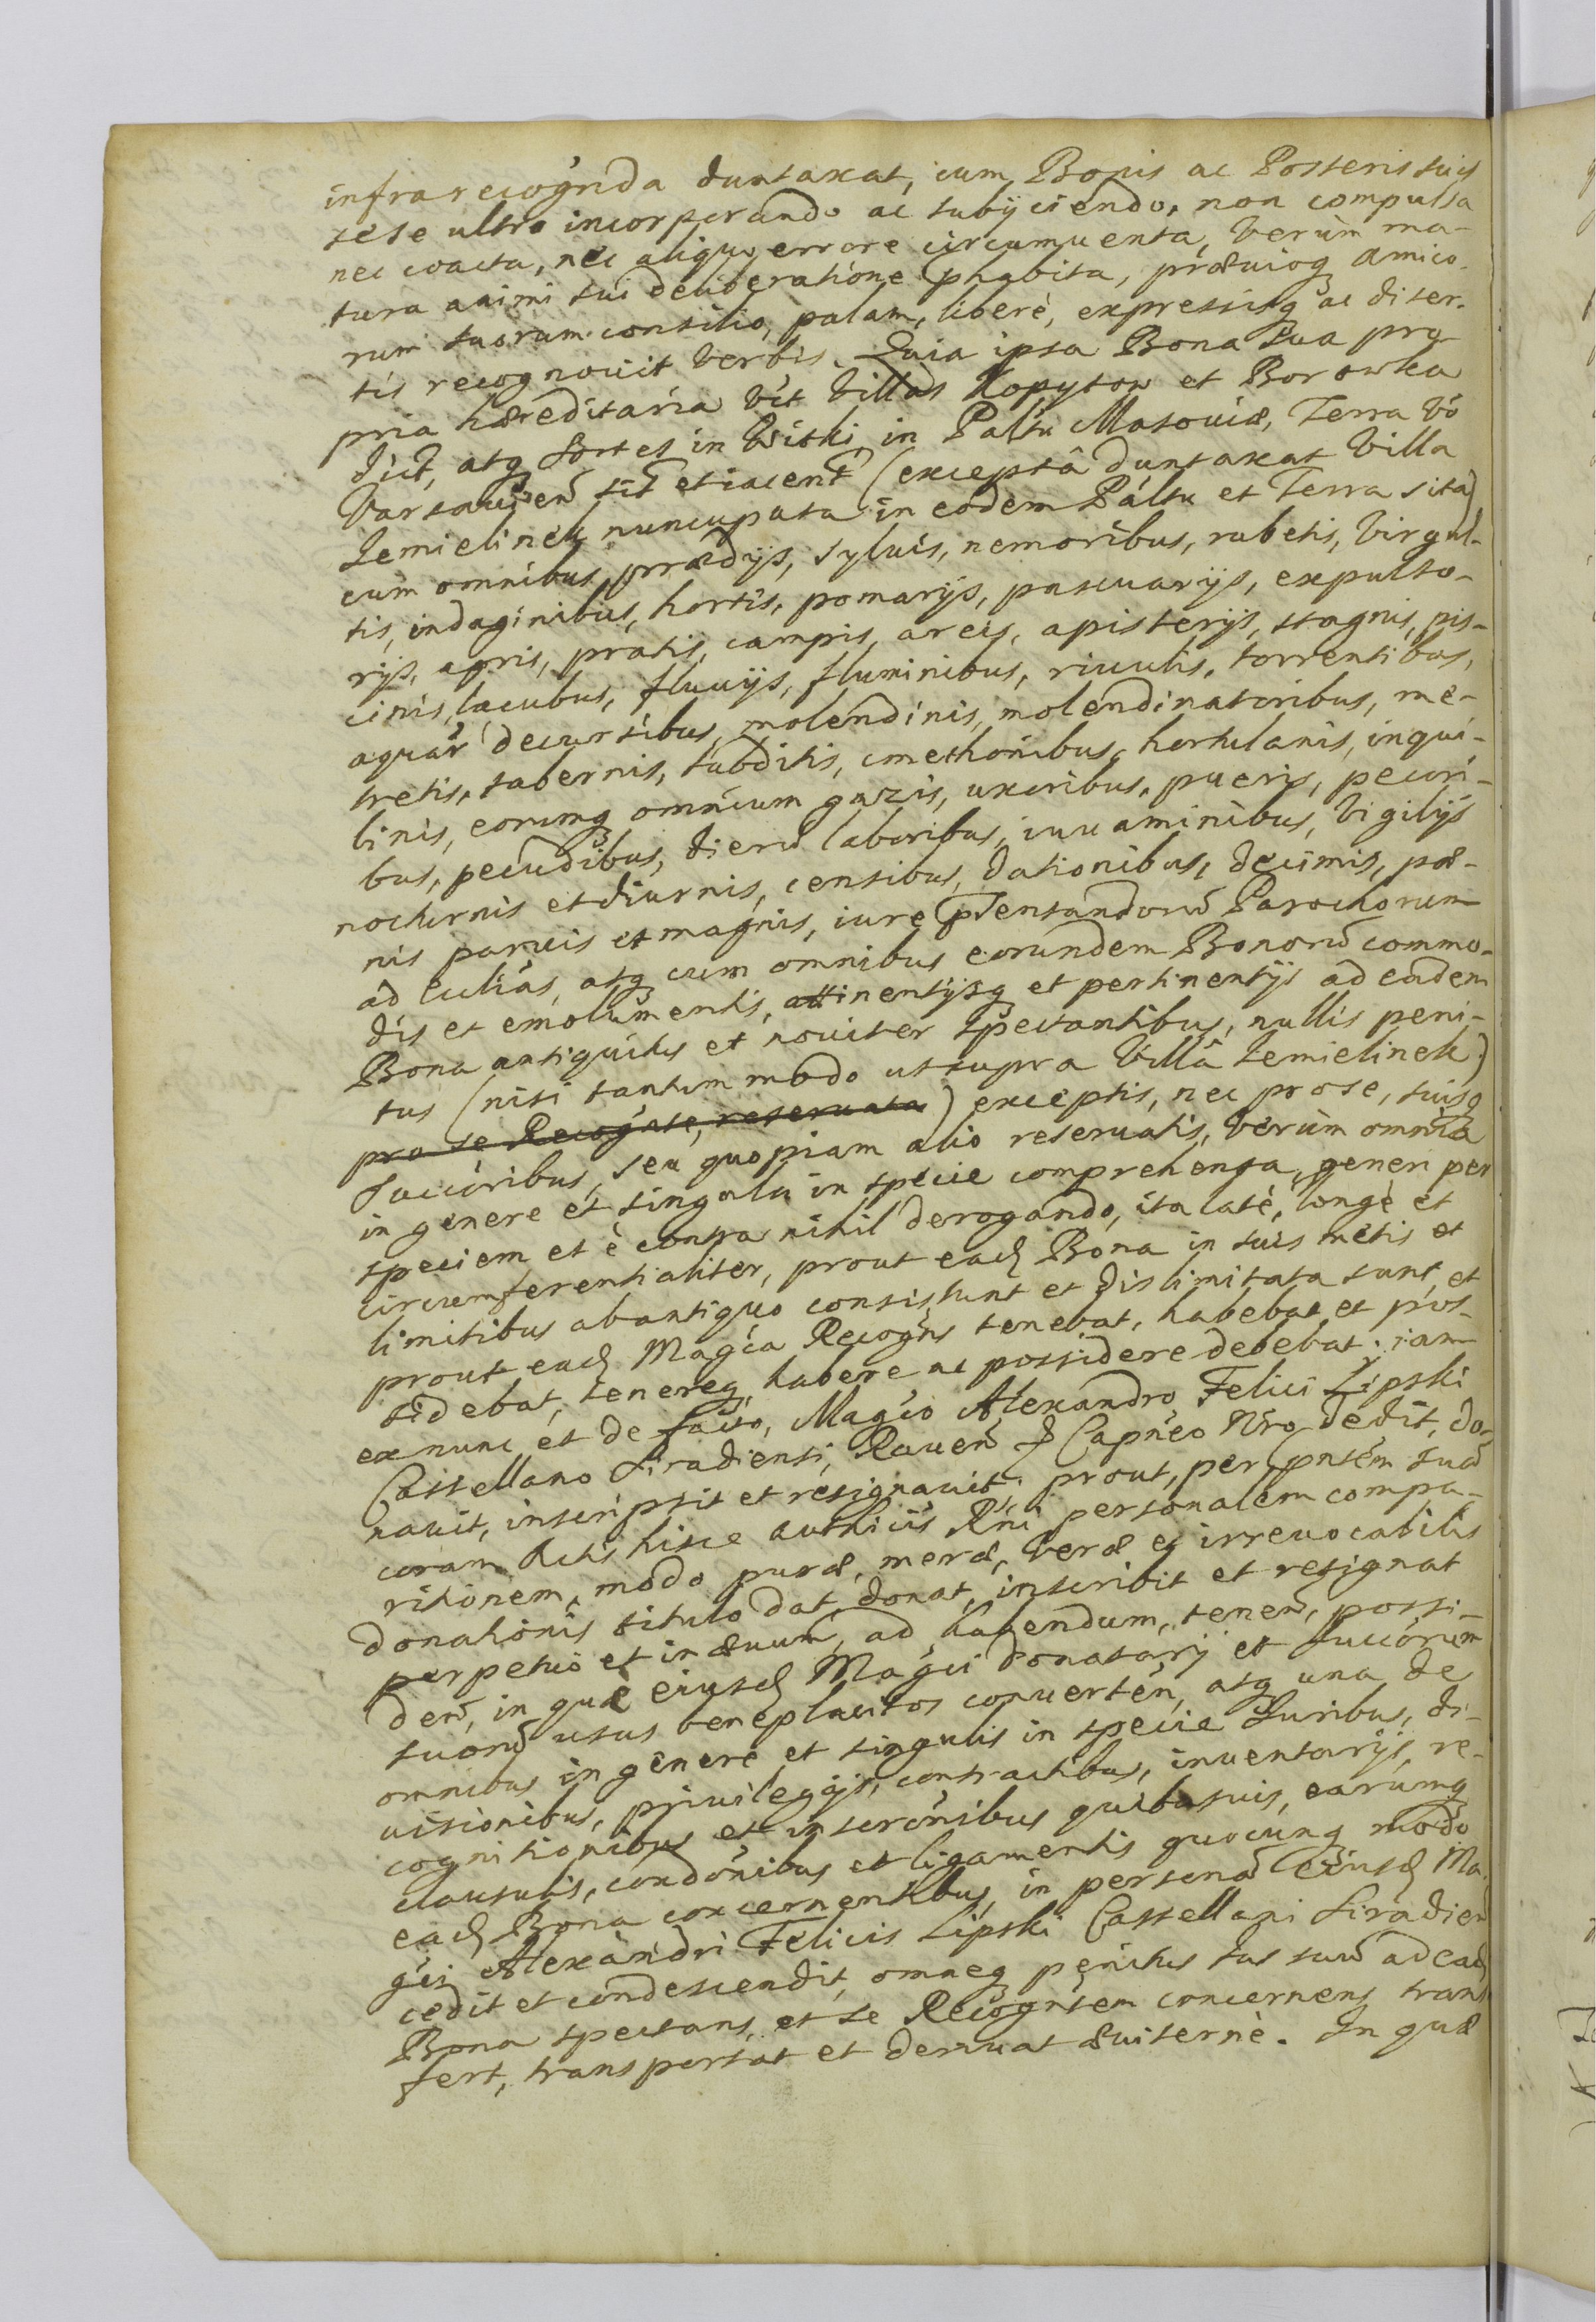 infrarecogñda duntaxat, cum Bonis ac Posteris suis
sese ultro incorporando ac subÿciendo, non compulsa
nec coacta, nec aliquo errore circumuenta, verùm ma-
tura animi sui deliberatione phabita, præuioq amico-
rum suorum consilio, palam, liberè, expressisq ac diser-
tis recognouit verbis. Quia ipsa Bona sua pro-
pria hæreditaria vit Villas Kopytow et Borowka
dict, atq Sortes in Witki, in Paltu Masouiæ, Terra vo
Varsauien sit et iacent (exceptâ duntaxat Villa
Zemielinek nuncupata in eodem Paltu et Terra sita)
cum omnibus prædÿs, syluis, nemoribus, rubetis, virgul-
tis, indaginibus, hortis, pomarÿs, pascuarÿs, expulso-
rÿs, agris, pratis, campis, areis, apisterÿs, stagnis, pis-
cinis, lacubus, fluuÿs, fluminibus, riuulis, torrentibus,
aquar decursibus, molendinis, molendinatoribus, me-
tretis, tabernis, subditis, cmethonibus, hortulanis, inqui-
linis, eorumq omnium gazis, uxoribus, pueris, pecori-
bus, pecudibus, dierũ laboribus, iuuaminibus, vigilÿs
nocturnis et diurnis, censibus, dationibus, decimis, pæ-
nis paruis et magnis, iure pdentandorũ Parochorum
ad Eccliâs, atq cum omnibus eorundem Bonorũ commo-
dis et emolumentis, attinentÿsq et pertinentÿs ad eadem
Bona antiquitus et nouiter spectantibus, nullis peni-
tus (nisi tantummodo ut supra Villâ Zemielinek)
pro se Recogñte, reseruata) exceptis, nec pro se, suisq
Succoribus, seu quopiam alio reseruatis, verùm omnia
in genere et singula in specie comprehensa, generi per
speciem et è contra nihil derogando, ita latè, longè et
circumferentialiter, prout ead Bona in suis metis et
limitibus ab antiquo consistunt et dislimitata sunt, et
prout ead Magca Recogñs tenebat, habebat et pos-
sidebat, tenereq, habere ac possidere debebat, iam
ex nunc et de facto, Magco Alexandro Felici Lipski
Castellano Siradiensi, Rauen & Capneo Nro dedit, do-
nauit, inscripsit et resignauit, prout, per pntem suã
coram Actis hisce Authicis Rni personalem compa-
ritionem, modo puræ, meræ, veræ et irreuocabilis
donationis titulo dat, donat, inscribit et resignat
perpetuò et in æuum, ad habendum, tenen, possi-
den, in quæ eiusd Magci Donatarÿ et Succorum
suorũ usus beneplacitos conuerten, atq una de
omnibus in genere et singulis in specie Juribus, di-
uisionibus, priuilegÿs, contractibus, inuentarÿs, re-
cognitionibus et inscronibus quibusuis, earumq
clausulis, condonibus et ligamentis quocunq modo
ead Bona concernentibus, in personã eiusd Ma-
gci Alexandri Felicis Lipski Castellani Siradien
cedit et condescendit, omneq penitus Jus suũ ad ead
Bona spectans, et se Recogñtem concernens trans-
fert, transportat et deriuat æuiternè. In quæ